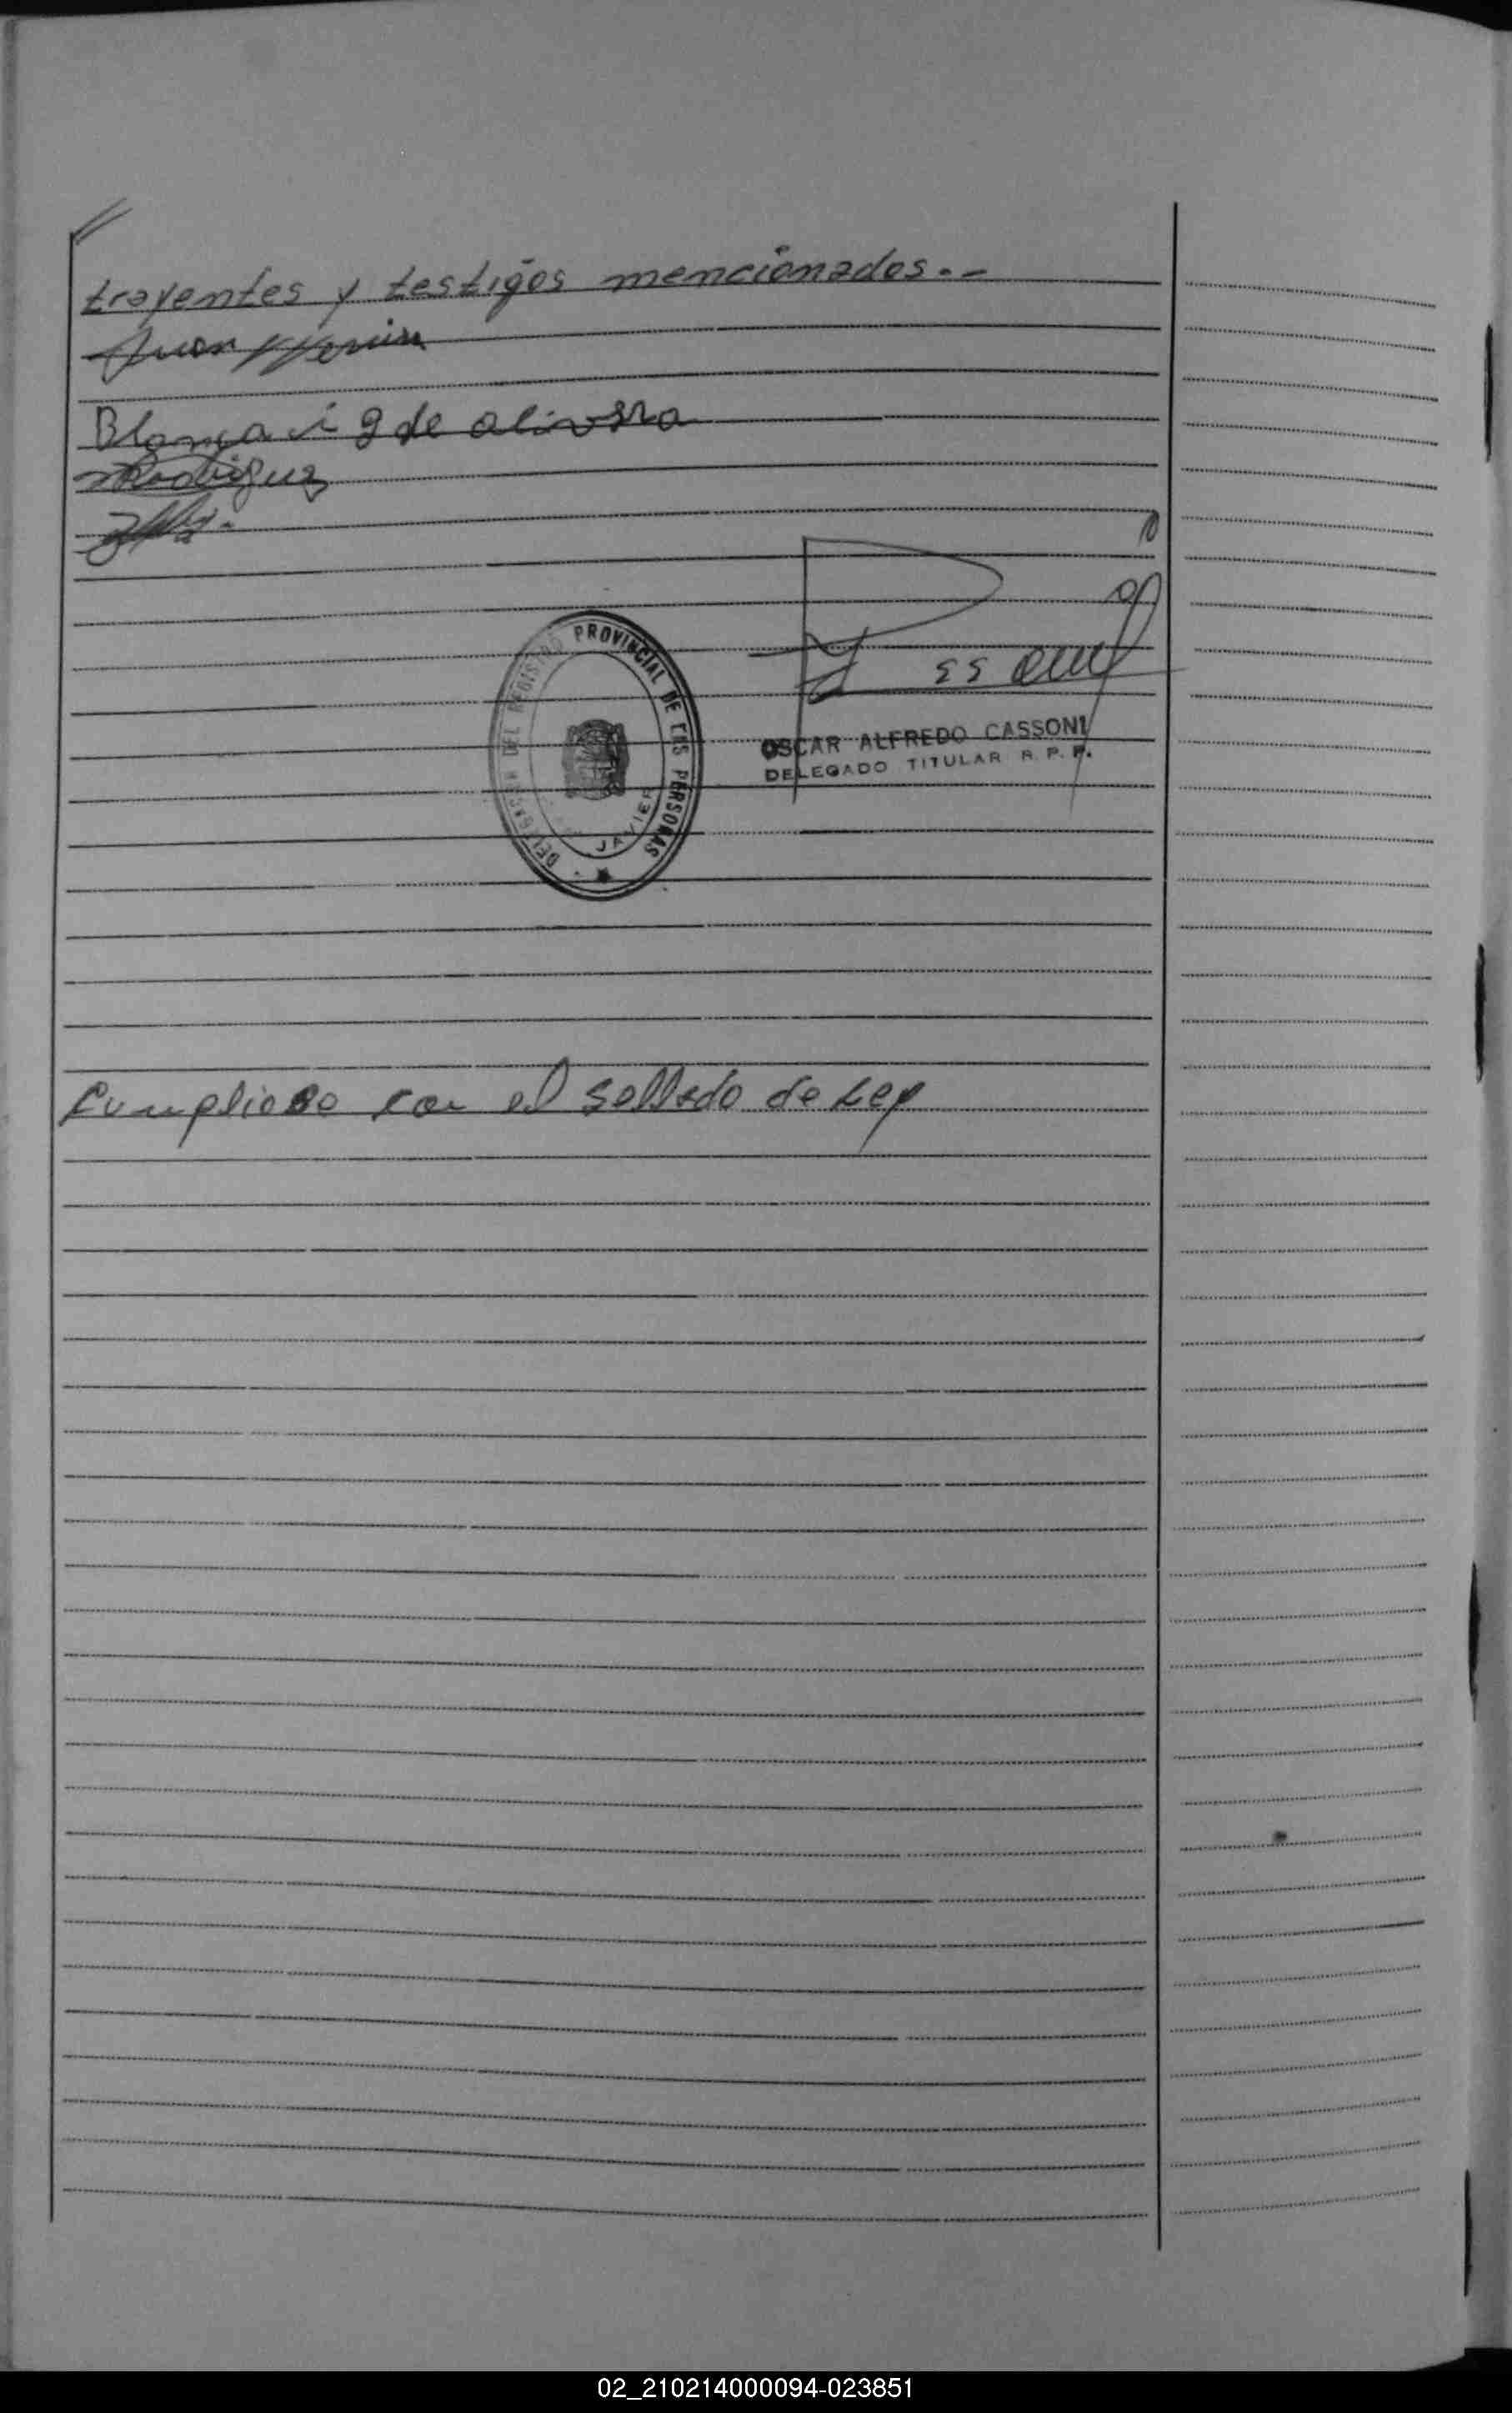 trayentes y testigos mencionados.-
Juan
Blanca i g de olivera
Rodriguez
DELEGACION DEL REGISTRO PROVINCIAL DE LAS PERSONAS
JAVIER
OSCAR ALFREDO CASSONI
DELEGADO TITULAR R. P. P.
Cumplióse con el sellado de Ley
02_210214000094-023851